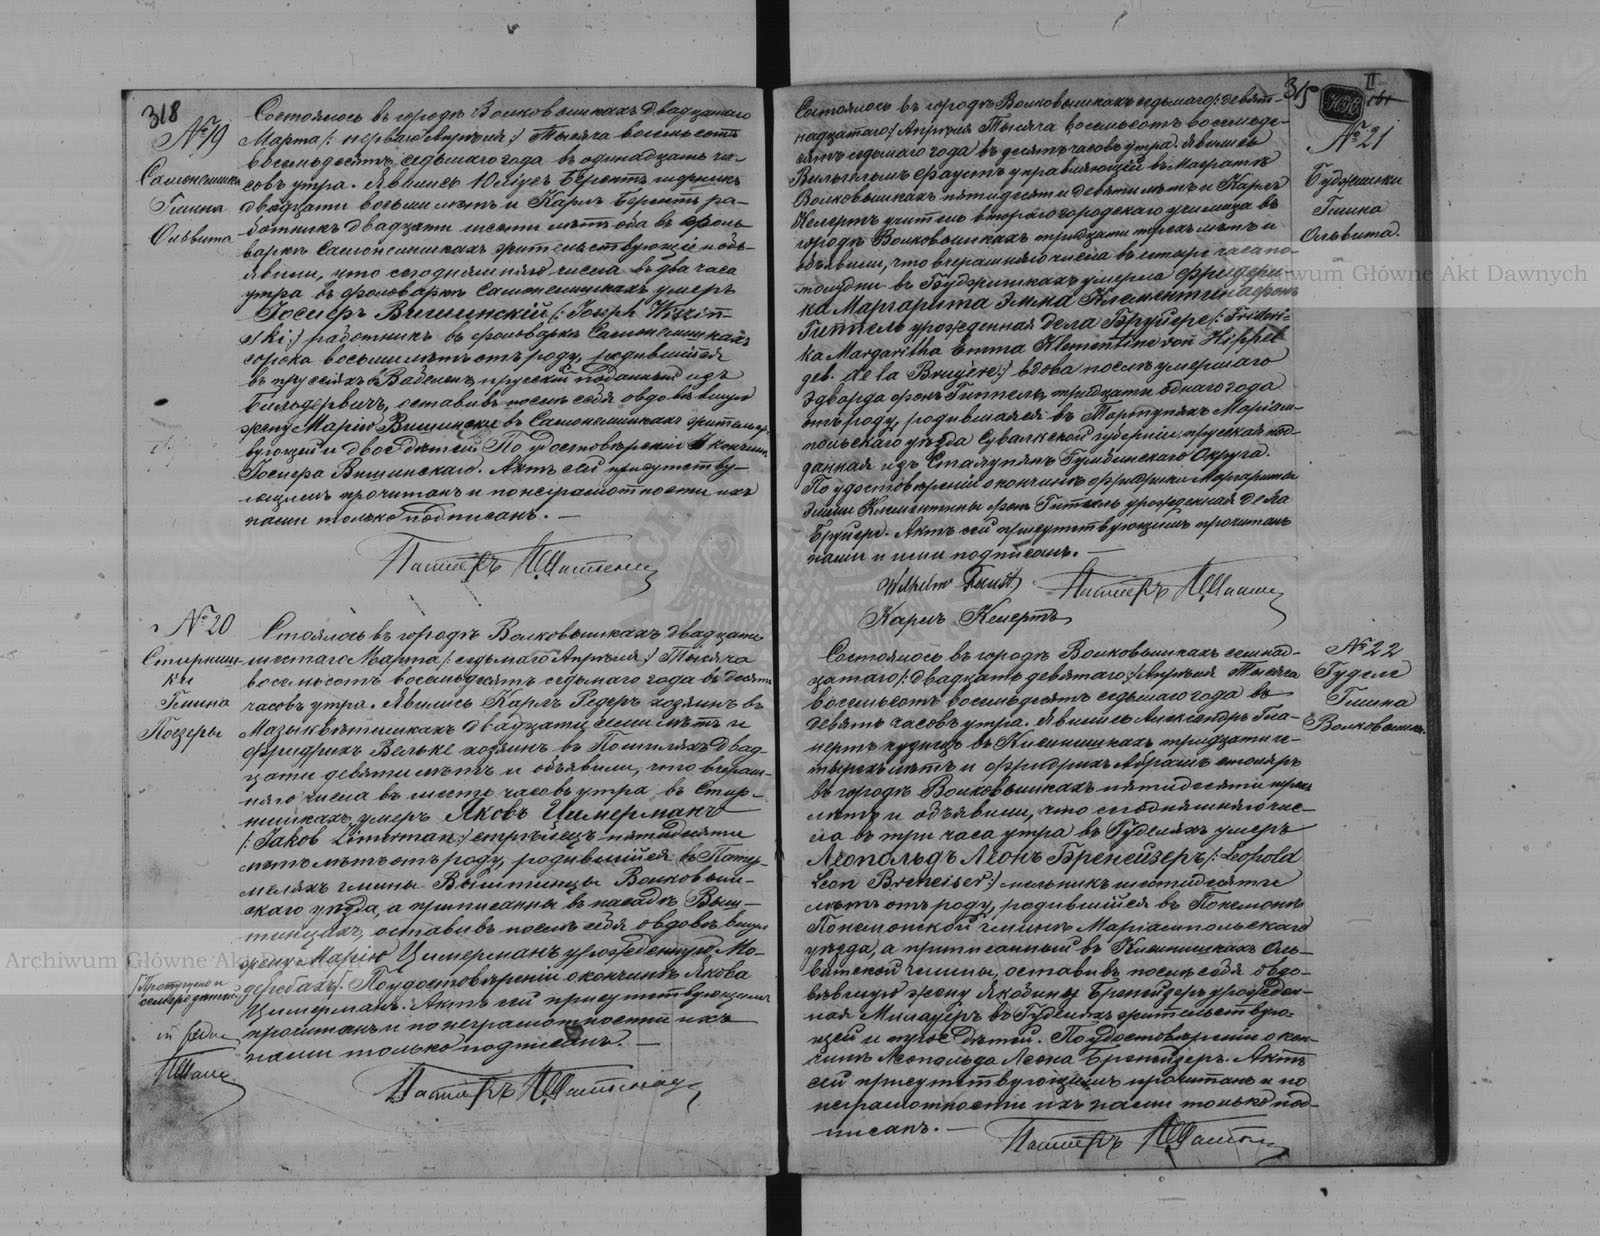 318
№ 19
Самонелишки
Гмина
Ольвита
Состоялось въ городѣ Волковышкахъ двадцатаго
Марта /: перваго Апрѣля :/ Тысяча восемьсотъ
восемьдесятъ седьмаго года въ одинадцать ча-
совъ утра. Явились Юліусъ Берентъ
двадцати восьми лѣтъ и Карлъ Берентъ ра-
ботникъ двадцати шести лѣтъ оба въ фоль-
варкѣ Самонелишкахъ жительствующіе и объ-
явили, что сегодняшняго числа въ два часа
утра въ фольваркѣ Самонелишкахъ умеръ
Іосифъ Вишинскій /: Joseph Wiszin-
ski :/ работникъ въ фольваркѣ Самонелишкахъ
сорока восьми лѣтъ отъ роду, родившійся
въ пруссіяхъ прусскій подданный изъ
оставивъ послѣ себя овдовѣвшую
жену Марію Вишински въ Самонелишкахъ жительст-
вующей и двое дѣтей. По удостовѣреніи о кончинѣ
Іосифа Вишинскаго. Актъ сей присутству-
ющимъ прочитанъ и по неграмотности ихъ
нами только подписанъ. —
Пасторъ
№ 20
Стирниш-
ки
Гмина
Поезеры
Стоялось въ городѣ Волковышкахъ двадцать
шестаго Марта /: седьмаго Апрѣля :/ Тысяча
восемьсотъ восемьдесятъ седьмаго года въ десять
часовъ утра. Явились Карлъ Редеръ хозяинъ въ
двадцати семи лѣтъ и
Фридрихъ Вельке хозяинъ въ двад-
цати девяти лѣтъ и объявили, что вчераш-
няго числа въ шесть часовъ утра въ Стир-
нишкахъ умеръ Яковъ Цимерманъ
/: Jakob Zimerman :/ пятидесяти
лѣтъ отъ роду, родившійся въ
гмины Виштинцы Волковыш-
скаго уѣзда, а приписанный въ посадѣ Выш-
тинцахъ, оставивъ послѣ себя овдовѣвшую
жену Марію Цимерманъ урожденную Мо-
деребахъ. По удостовѣреніи о кончинѣ Якова
Цимерманъ. Актъ сей присутствующимъ
прочитанъ и по неграмотности ихъ
нами только подписанъ. —
Пасторъ
315
II
№ 21
Будзишки
Гмина
Ольвита.
Состоялось въ городѣ Волковышкахъ седьмаго /: девят-
надцатаго :/ Апрѣля Тысяча восемьсотъ восемьде-
сятъ седьмаго года въ десять часовъ утра. Явились
Вильгельмъ Фаустъ управляющій въ
Волковышкахъ пятидесяти девяти лѣтъ и Карлъ
Келертъ учитель втораго городскаго училища въ
городѣ Волковышкахъ тридцати трехъ лѣтъ и
объявили, что вчерашняго числа въ четыре часа по
полудни въ Будзишкахъ умерла Фридери-
ка Маргарита Эмма Клементина фонъ
Гиппель урожденная дела Бруйере /: Frideri-
ka Margaritha Emma Klementine von Hippel
geb. de la Bruyère :/ вдова послѣ умершаго
Эдварда фонъ Гиппель, тридцати однаго года
отъ роду, родившаяся въ Тарпупяхъ Маріам-
польскаго уѣзда Сувалкской губерніи, прусская под-
данная изъ Сталупянъ Гумбинскаго Округа.
По удостовѣреніи о кончинѣ Фридрики Маргариты
Эммы Клементины фонъ Гиппель урожденная дела
Бруйере. Актъ сей присутствующимъ прочитанъ
нами и ими подписанъ. —
Wilhelm Faust
Пасторъ
Карлъ Келертъ
№ 22
Гудели
Гмина
Волковышки.
Состоялось въ городѣ Волковышкахъ семнад-
цатаго /: двадцать девятаго :/ Апрѣля Тысяча
восемьсотъ восемьдесятъ седьмаго года въ
девять часовъ утра. Явились Александръ
въ Кисинишкахъ тридцати че-
тырехъ лѣтъ и Фридрихъ Абрамъ столяръ
въ городѣ Волковышкахъ пятидесяти трехъ
лѣтъ и объявили, что сегодняшняго чис-
ла въ три часа утра въ Гуделяхъ умеръ
Леопольдъ Леонъ Бренейзеръ /: Leopold
Leon Breneiser :/ мельникъ шестидесяти
лѣтъ отъ роду, родившійся въ Понемонѣ
Понемонской гмины Маріампольскаго
уѣзда, а приписанный въ Кисинишкахъ Оль-
витской гмины, оставивъ послѣ себя овдо-
вѣвшую жену Якобину Бренейзеръ урожден-
ная Милауеръ въ Гуделяхъ жительствую-
щей и трое дѣтей. По удостовѣреніи о кон-
чинѣ Леопольда Леона Бренейзеръ. Актъ
сей присутствующимъ прочитанъ и по
неграмотности ихъ нами только под-
писанъ. —
Пасторъ
Archiwum Główne Akt Dawnych